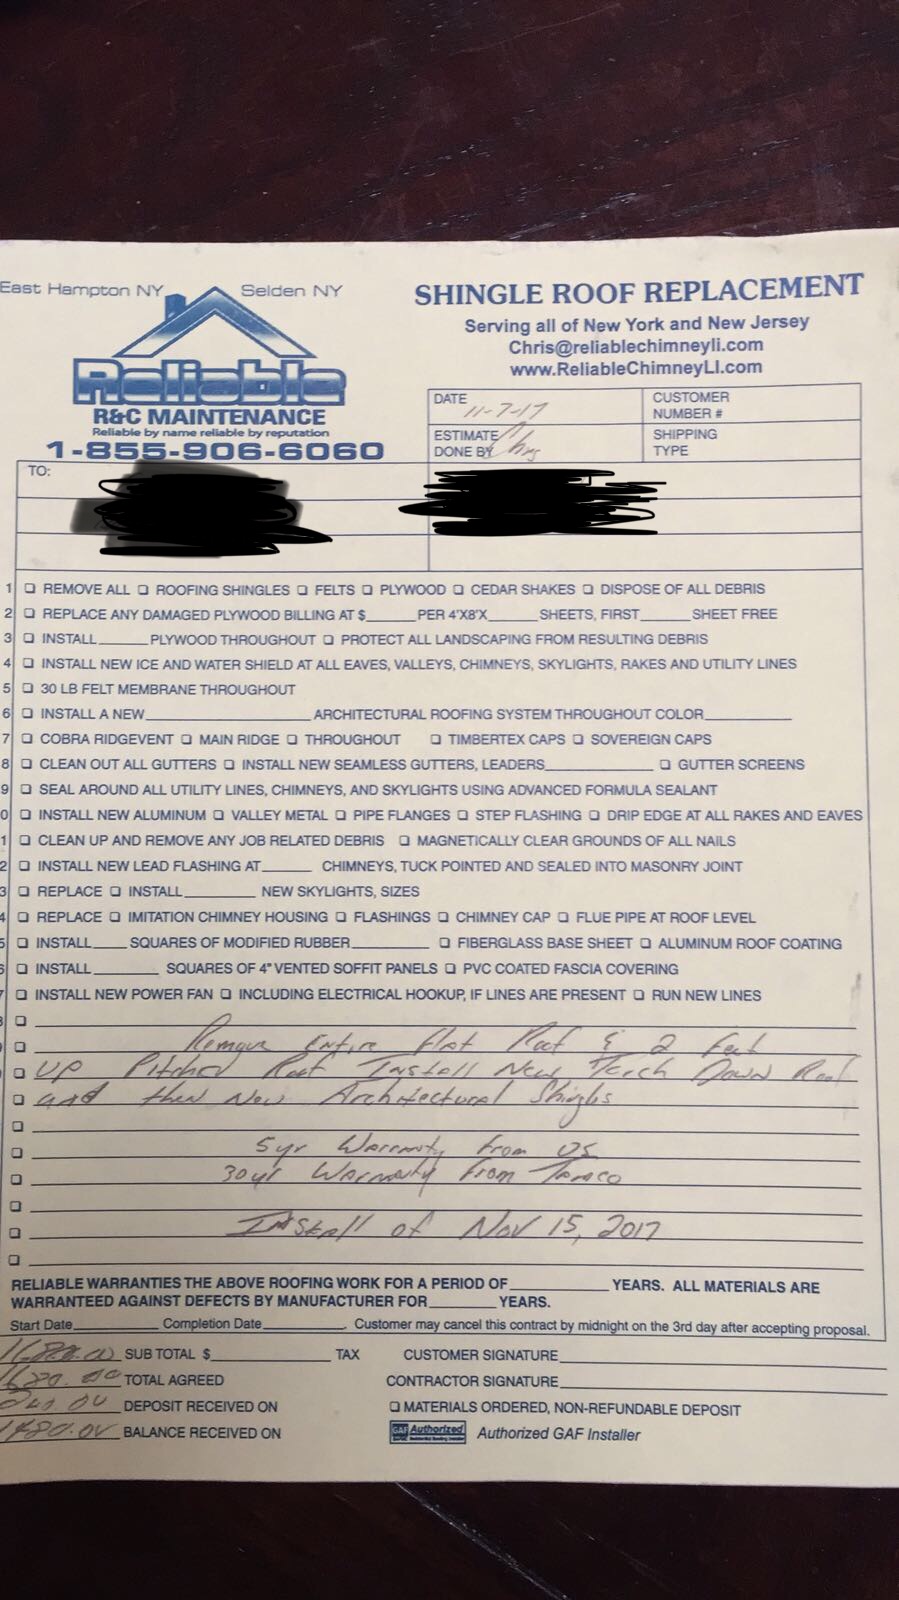 East Hampton NY Selden NY
Reliable
R&C MAINTENANCE
Reliable by name reliable by reputation
1-855-906-6060
SHINGLE ROOF REPLACEMENT
Serving all of New York and New Jersey
Chris@reliablechimneyli.com
www.ReliableChimneyLI.com
DATE 11-7-17
CUSTOMER
NUMBER #
ESTIMATE
DONE BY Chris
SHIPPING
TYPE
TO:
1 REMOVE ALL ROOFING SHINGLES FELTS PLYWOOD CEDAR SHAKES DISPOSE OF ALL DEBRIS
2 REPLACE ANY DAMAGED PLYWOOD BILLING AT $ PER 4'X8'X SHEETS, FIRST SHEET FREE
3 INSTALL PLYWOOD THROUGHOUT PROTECT ALL LANDSCAPING FROM RESULTING DEBRIS
4 INSTALL NEW ICE AND WATER SHIELD AT ALL EAVES, VALLEYS, CHIMNEYS, SKYLIGHTS, RAKES AND UTILITY LINES
5 30 LB FELT MEMBRANE THROUGHOUT
6 INSTALL A NEW ARCHITECTURAL ROOFING SYSTEM THROUGHOUT COLOR
7 COBRA RIDGEVENT MAIN RIDGE THROUGHOUT TIMBERTEX CAPS SOVEREIGN CAPS
8 CLEAN OUT ALL GUTTERS INSTALL NEW SEAMLESS GUTTERS, LEADERS GUTTER SCREENS
9 SEAL AROUND ALL UTILITY LINES, CHIMNEYS, AND SKYLIGHTS USING ADVANCED FORMULA SEALANT
0 INSTALL NEW ALUMINUM VALLEY METAL PIPE FLANGES STEP FLASHING DRIP EDGE AT ALL RAKES AND EAVES
1 CLEAN UP AND REMOVE ANY JOB RELATED DEBRIS MAGNETICALLY CLEAR GROUNDS OF ALL NAILS
2 INSTALL NEW LEAD FLASHING AT CHIMNEYS, TUCK POINTED AND SEALED INTO MASONRY JOINT
3 REPLACE INSTALL NEW SKYLIGHTS, SIZES
4 REPLACE IMITATION CHIMNEY HOUSING FLASHINGS CHIMNEY CAP FLUE PIPE AT ROOF LEVEL
5 INSTALL SQUARES OF MODIFIED RUBBER FIBERGLASS BASE SHEET ALUMINUM ROOF COATING
6 INSTALL SQUARES OF 4" VENTED SOFFIT PANELS PVC COATED FASCIA COVERING
7 INSTALL NEW POWER FAN INCLUDING ELECTRICAL HOOKUP, IF LINES ARE PRESENT RUN NEW LINES
Remove Entire Flat Roof & 2 Feet
UP Pitched Roof Install New Torch Down Roof
and then New Architectural Shingles
5yr Warranty from US
30yr Warranty from Tamco
Install of Nov 15, 2017
RELIABLE WARRANTIES THE ABOVE ROOFING WORK FOR A PERIOD OF YEARS. ALL MATERIALS ARE
WARRANTEED AGAINST DEFECTS BY MANUFACTURER FOR YEARS.
Start Date Completion Date Customer may cancel this contract by midnight on the 3rd day after accepting proposal.
1680.00 SUB TOTAL $ TAX CUSTOMER SIGNATURE
1680.00 TOTAL AGREED CONTRACTOR SIGNATURE
200.00 DEPOSIT RECEIVED ON MATERIALS ORDERED, NON-REFUNDABLE DEPOSIT
1480.00 BALANCE RECEIVED ON GAF Authorized Authorized GAF Installer